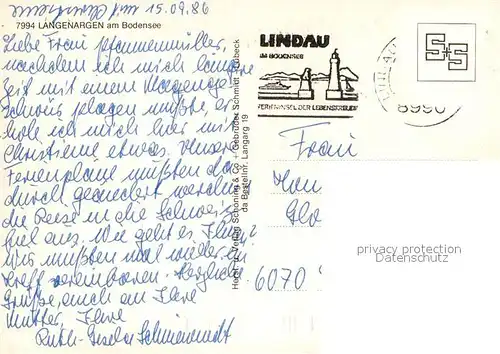 15.09.86
7994 LANGENARGEN am Bodensee
Liebe Frau Pfannemüller,
nachdem ich mich lange
Zeit mit einem Magenge-
schwür plagen mußte, er-
hole ich mich hier mit
Christiene etwas. Unsere
Ferienpläne mußten da-
durch geändert werden
die Reise in die Schweiz
fiel aus. Wie geht es Ihnen?
Wir mußten mal wieder ein
Treff vereinbaren. Herzliche
Grüße, auch an Ihre
Mutter, Ihre
Ruth-Gisela
Verlag Schöning & Co + Gebrüder Schmidt - Lübeck
Bestellnr. Langarg 19
LINDAU
IM BODENSEE
FERIENINSEL DER LEBENSFREUDE
8990
S+S
Frau
6070
privacy protection
Datenschutz